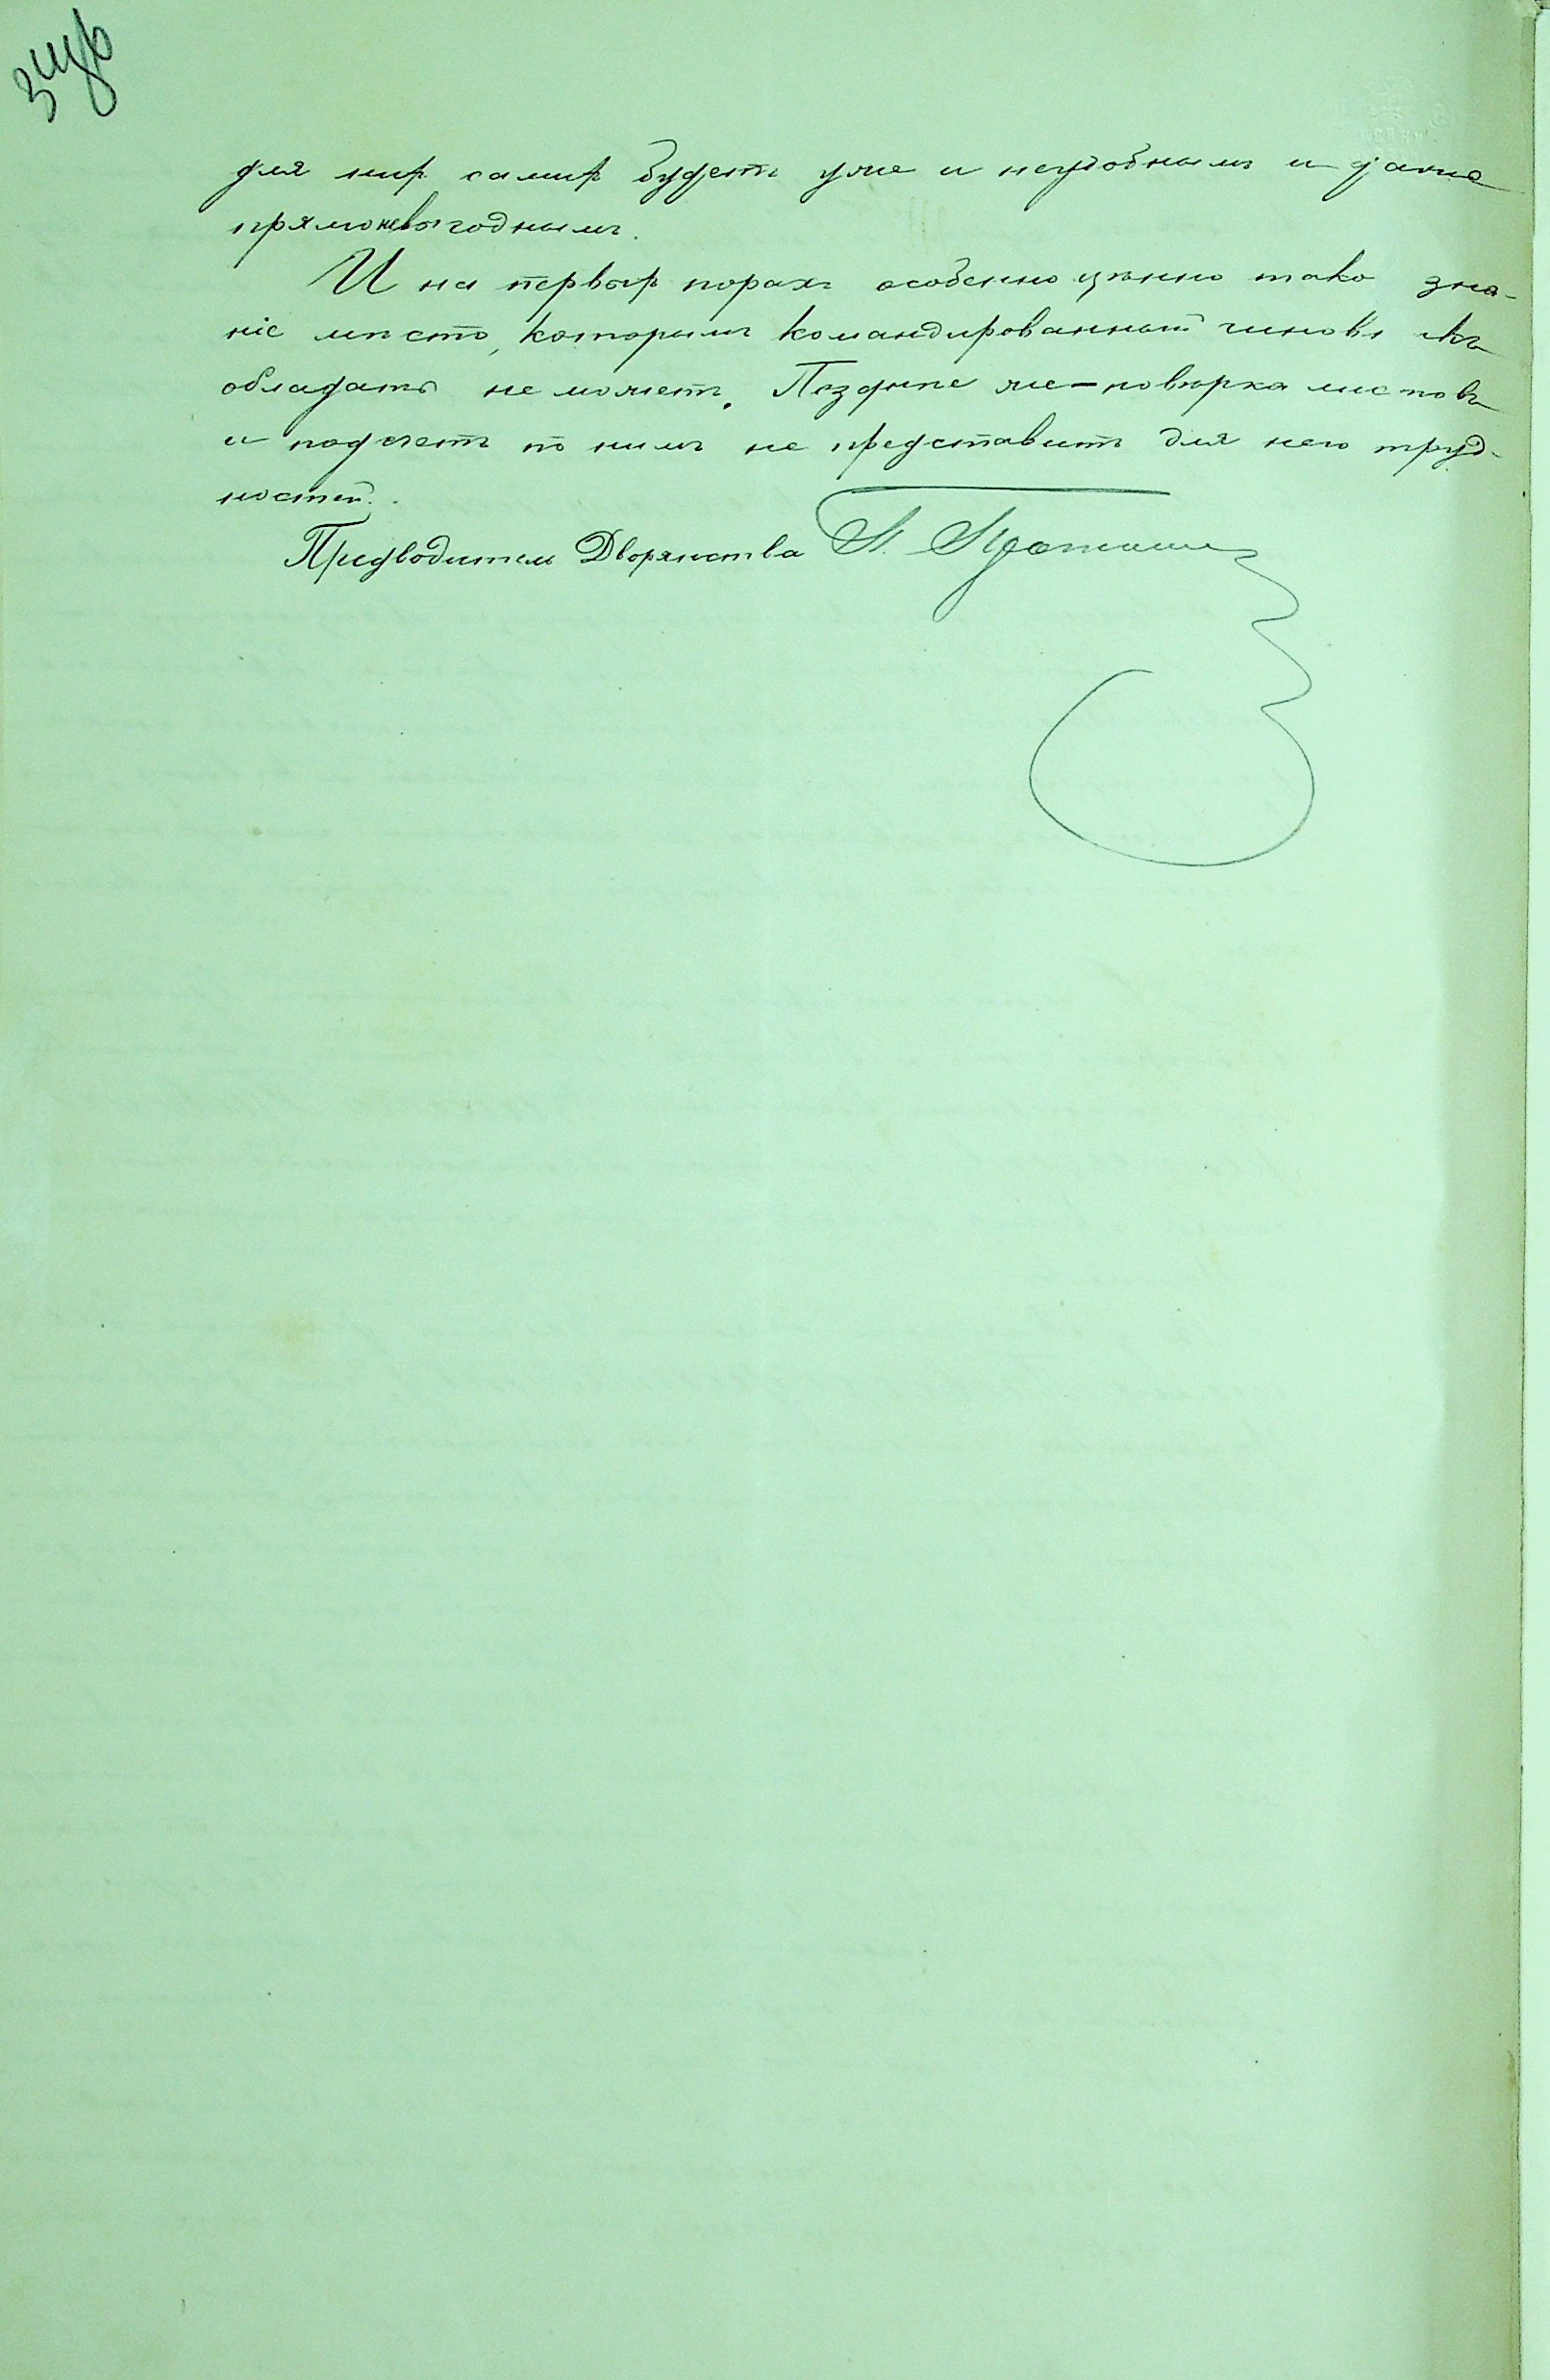 для них самих будетъ уже и неудобнымъ и даже
прямо невыгоднымъ.
И на первых порахъ особенно цѣнно тако зна-
ніе мѣстъ, которымъ командированный чиновн икъ
обладать не можетъ. Позднѣе же - повѣрка листовъ
и подсчетъ по нимъ не представитъ для него труд-
ностей.
Предводитель Дворянства